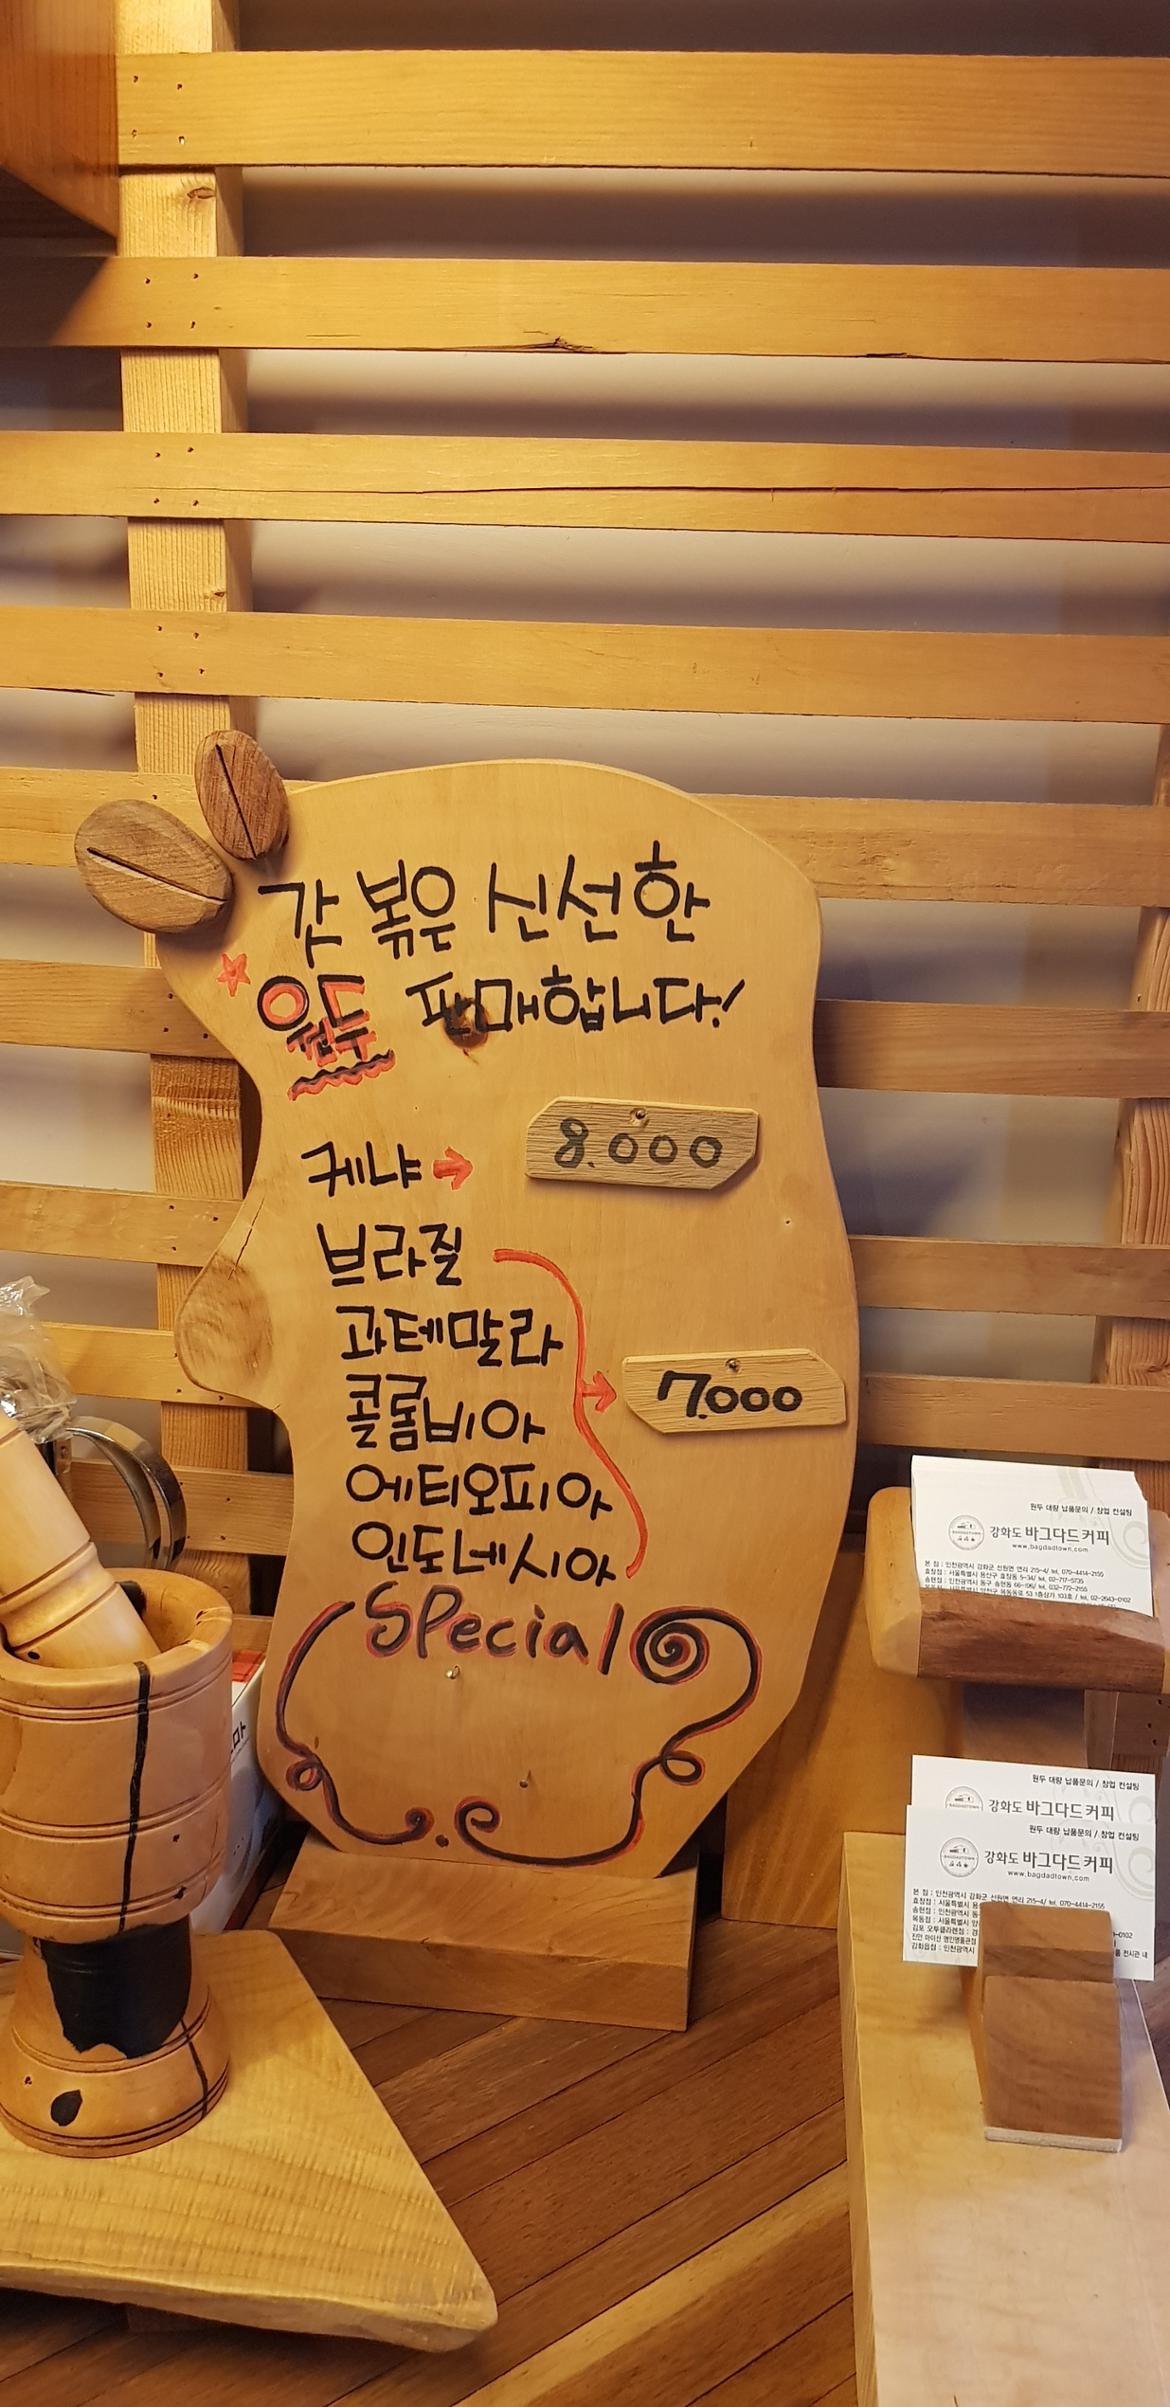 갓 볶은 신선한
원두 판매합니다!
케냐 → 8.000
브라질
과테말라
콜롬비아
에티오피아
인도네시아
→ 7.000
Special
원두 대량 납품문의 / 창업 컨설팅
강화도 바그다드커피
www.bagdadtown.com
본 점 : 인천광역시 강화군 선원면 연리 215-4/ tel. 070-4414-2155
효창점 : 서울특별시 용산구 효창동 5-34/ tel. 02-717-5735
송현점 : 인천광역시 동구 송현동 66-196/ tel. 032-772-2155
원두 대량 납품문의 / 창업 컨설팅
강화도 바그다드커피
원두 대량 납품문의 / 창업 컨설팅
BAGDADTOWN
강화도 바그다드커피
www.bagdadtown.com
본 점 : 인천광역시 강화군 선원면 연리 215-4/ tel. 070-4414-2155
효창점 : 서울특별시
송현점 : 인천광역시
목동점 : 서울특별시
인천광역시